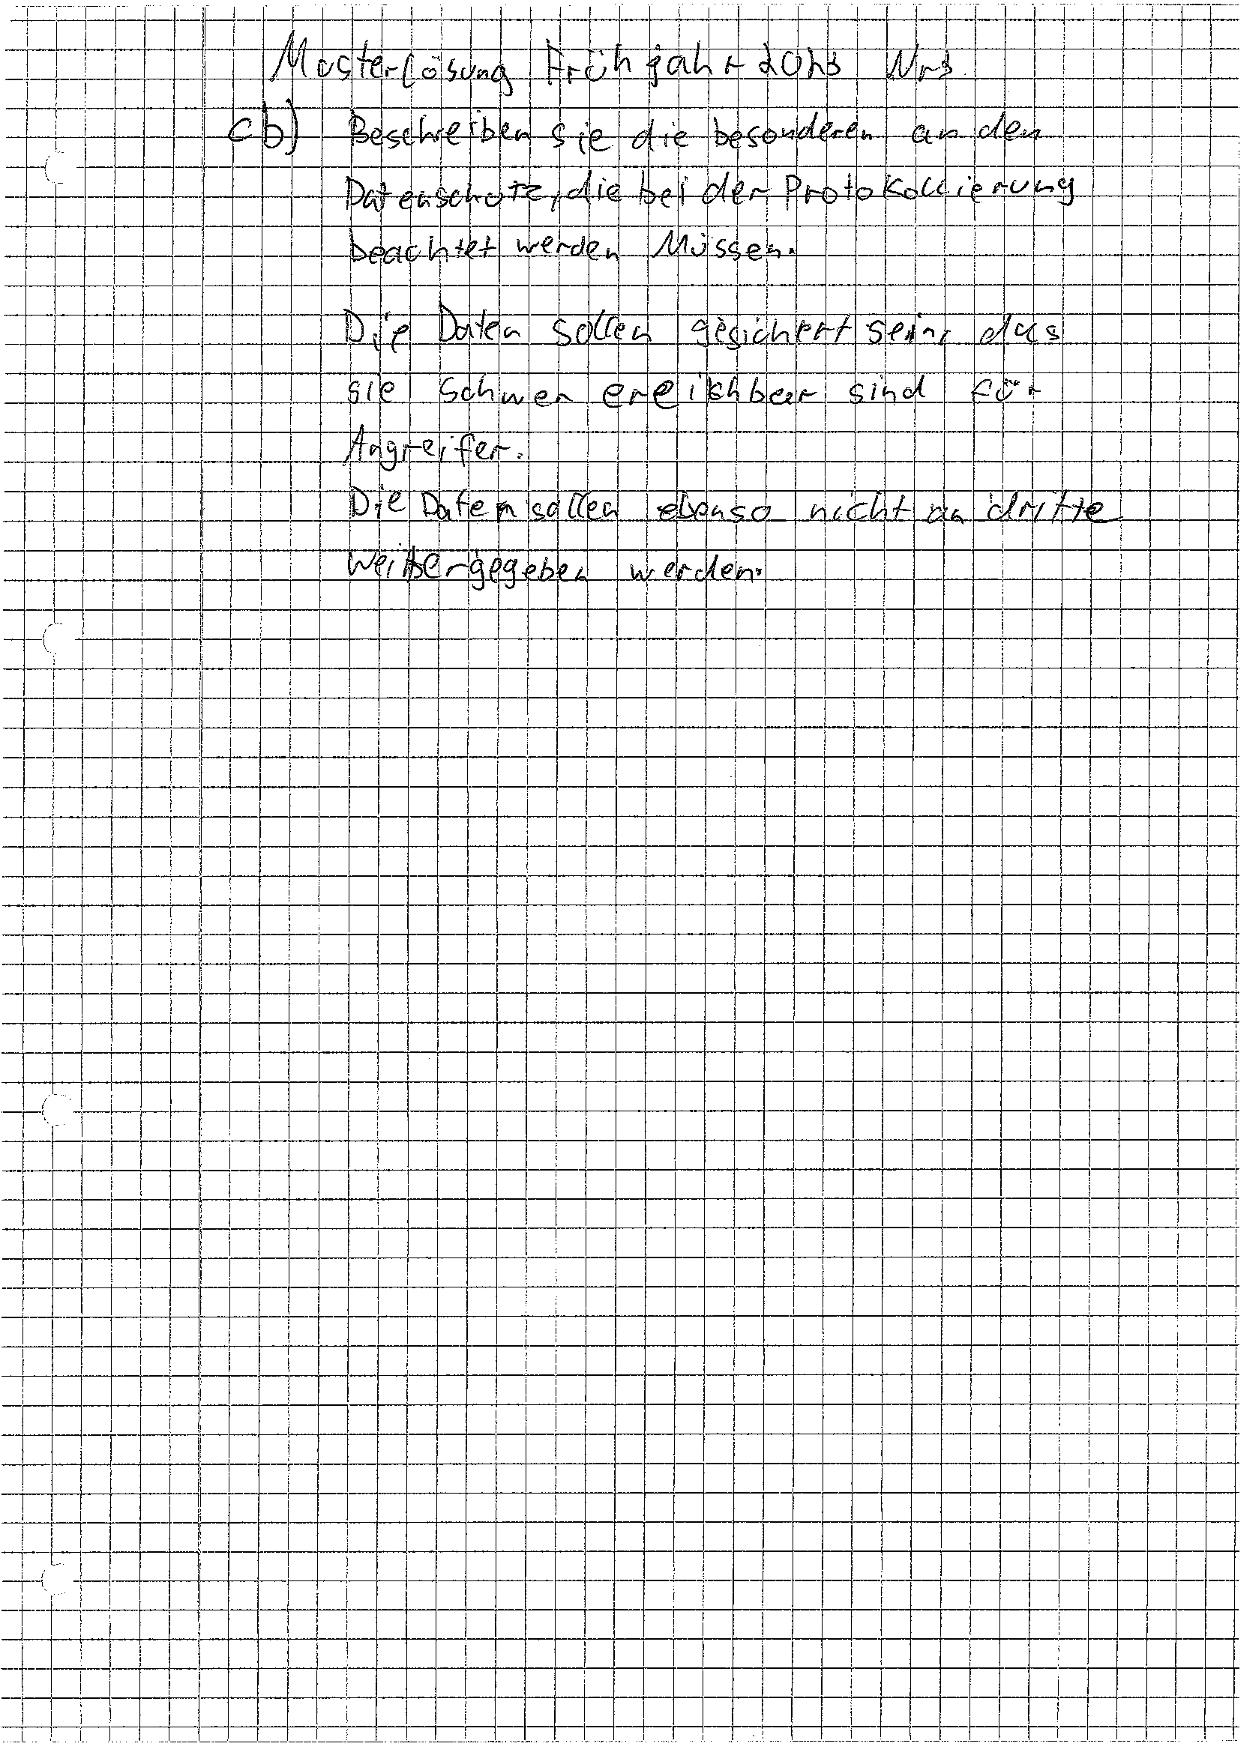 Musterlösung Frühjahr 2023 Nr3
cb) Beschreiben sie die besonderen an den
Datenschutz, die bei der Protokollierung
beachtet werden Müssen.
Die Daten sollen gesichert sein, das
sie schwer ereichbar sind für
Angreifer.
Die Daten sollen ebenso nicht an dritte
weitergegeben werden.